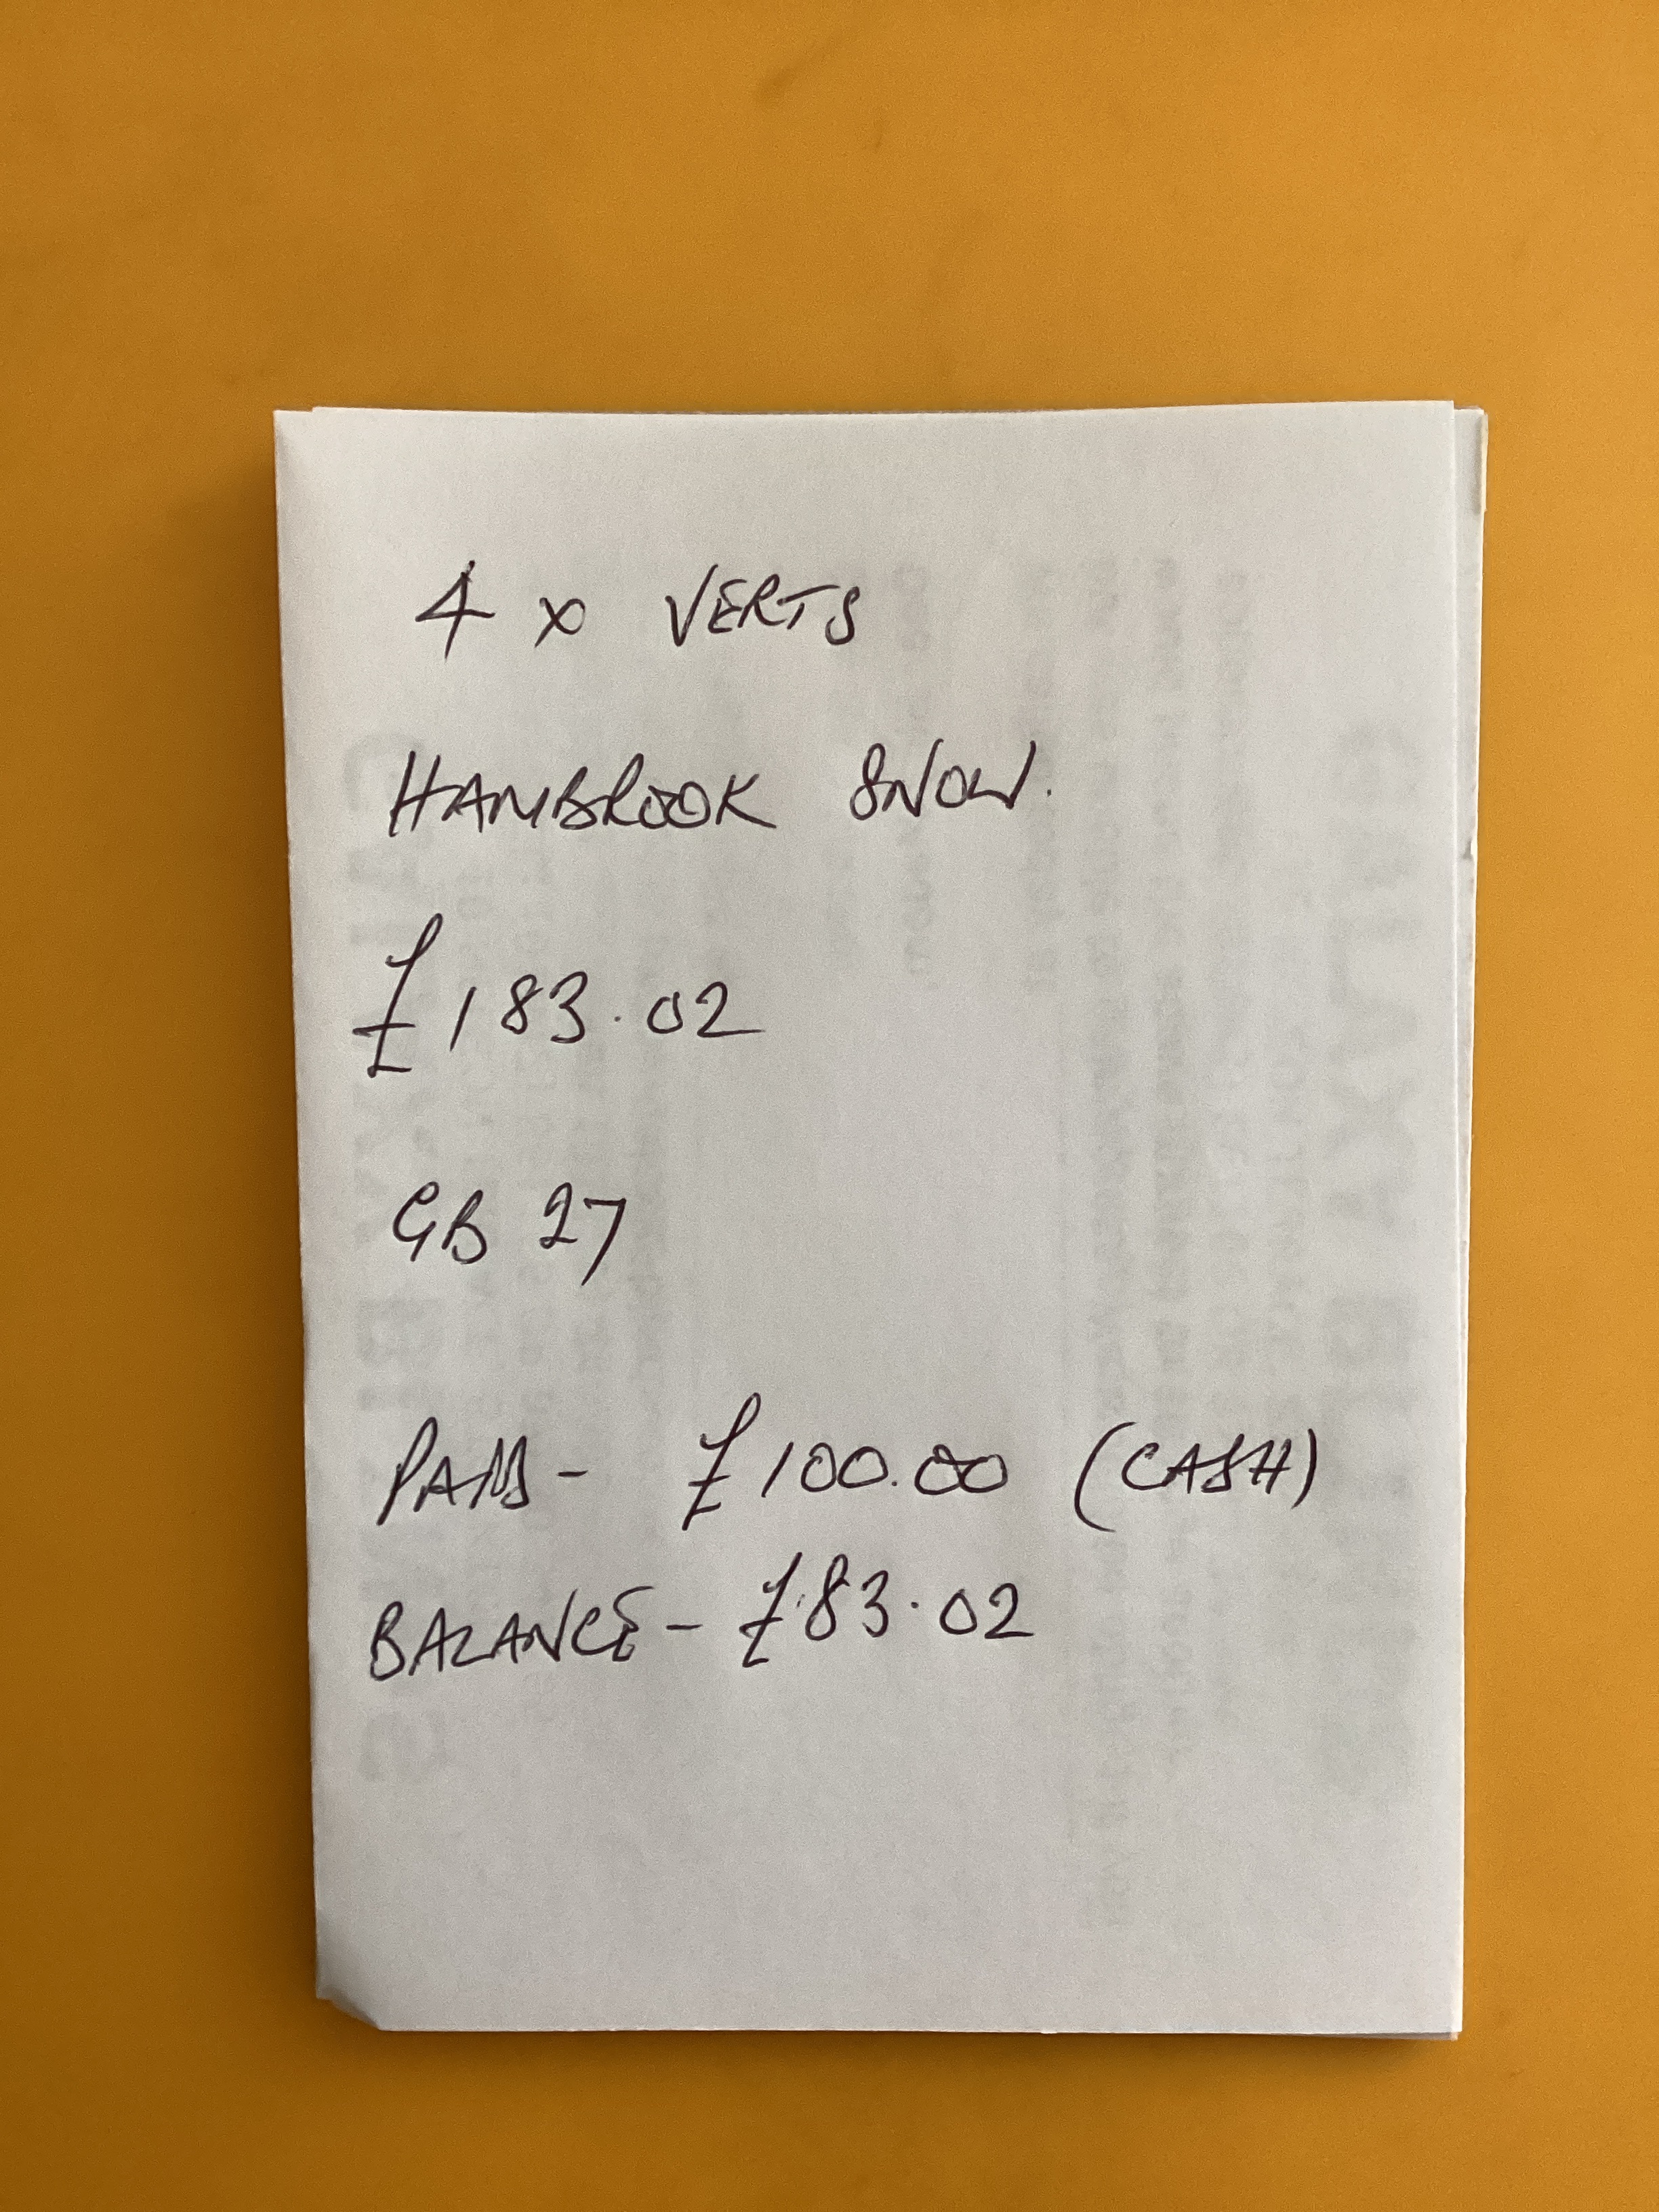 4 x VERTS
HAMBROOK SNOW.
£183.02
GB 27
£100.00 (CASH)
BALANCE - £83.02